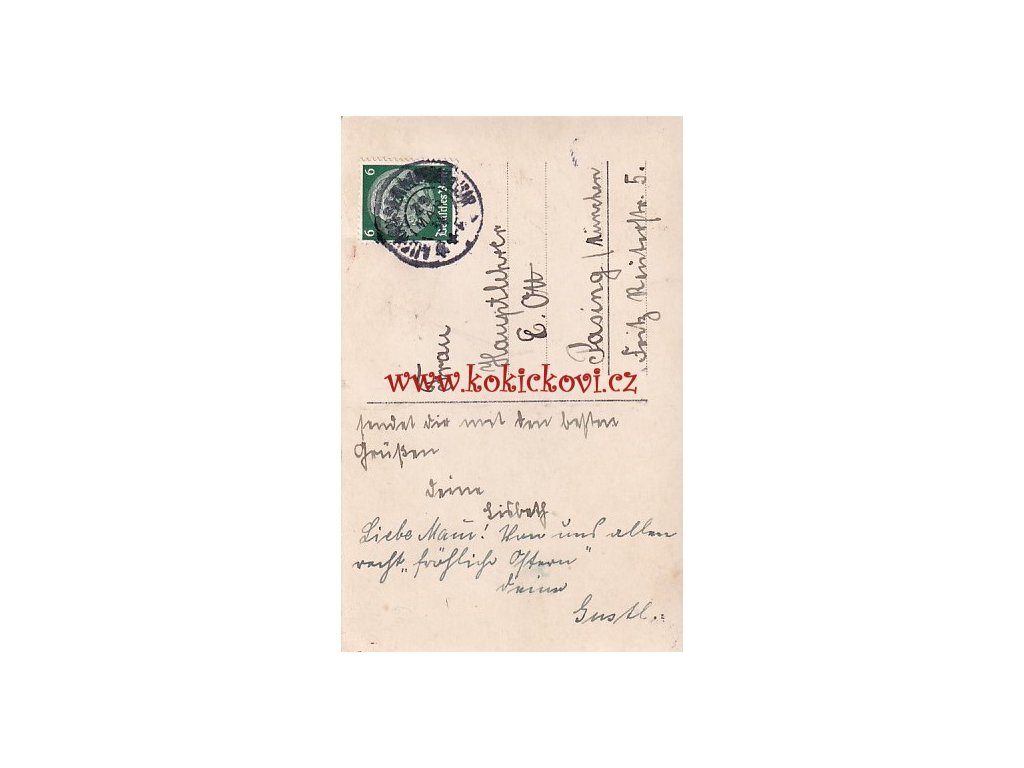 6 6
Deutsches R
Frau
Hauptlehrer
E. Ott
Pasing / München
Fritz Reuterstr. 5.
www.kokickovi.cz
sendet dir mit den besten
Grüßen
Deine
Lisbeth
Liebe Mam̄! Von uns allen
recht „fröhliche Ostern"
Deine
Gustl.